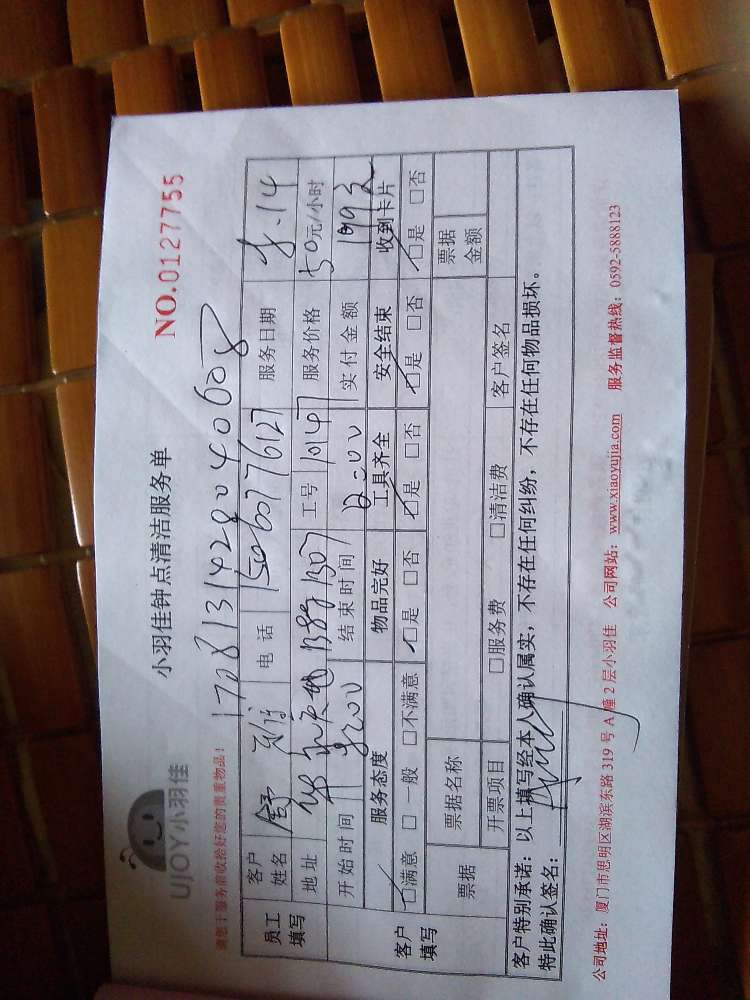 UJOY小羽佳
小羽佳钟点清洁服务单
NO.0127755
请您于服务前收拾好您的贵重物品！
170813142804060s
员工填写
客户姓名 舒 电话 15060776127 服务日期 8.14
地址 华 天地 B嗒1307 工号 10147 服务价格 50元/小时
开始时间 8:00 结束时间 12:00 实付金额
客户填写
服务态度 物品完好 工具齐全 安全结束 收到卡片
☑满意 □一般 □不满意 ☑是 □否 ☑是 □否 ☑是 □否 ☑是 □否
票据 票据名称 票据金额
开票项目 □服务费 □清洁费 客户签名
客户特别承诺：以上填写经本人确认属实，不存在任何纠纷，不存在任何物品损坏。
特此确认签名：
公司地址：厦门市思明区湖滨东路 319 号 A 幢 2 层小羽佳 公司网站：www.xiaoyujia.com 服务监督热线：0592-5888123